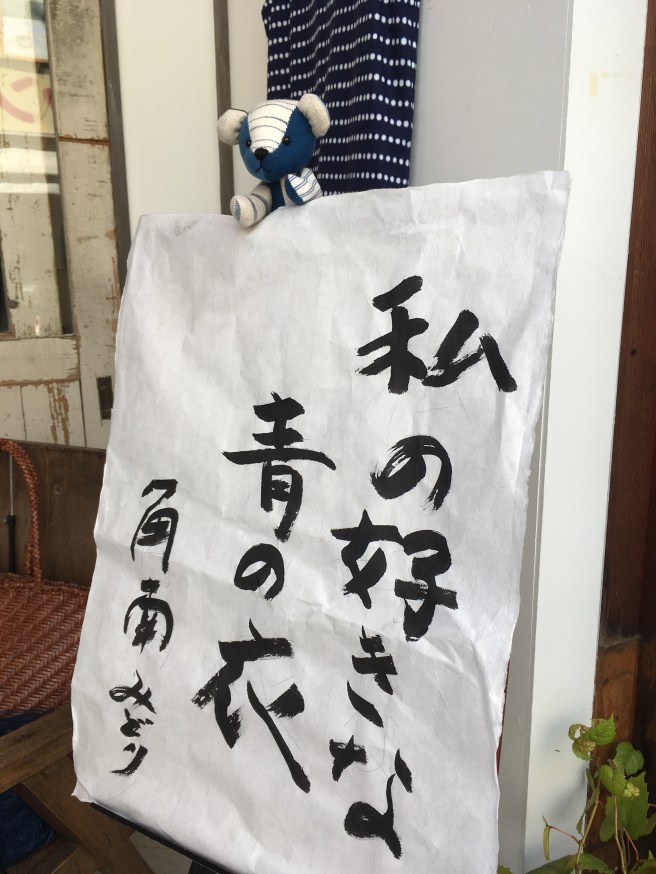 私の好きな
青の衣
角南みどり